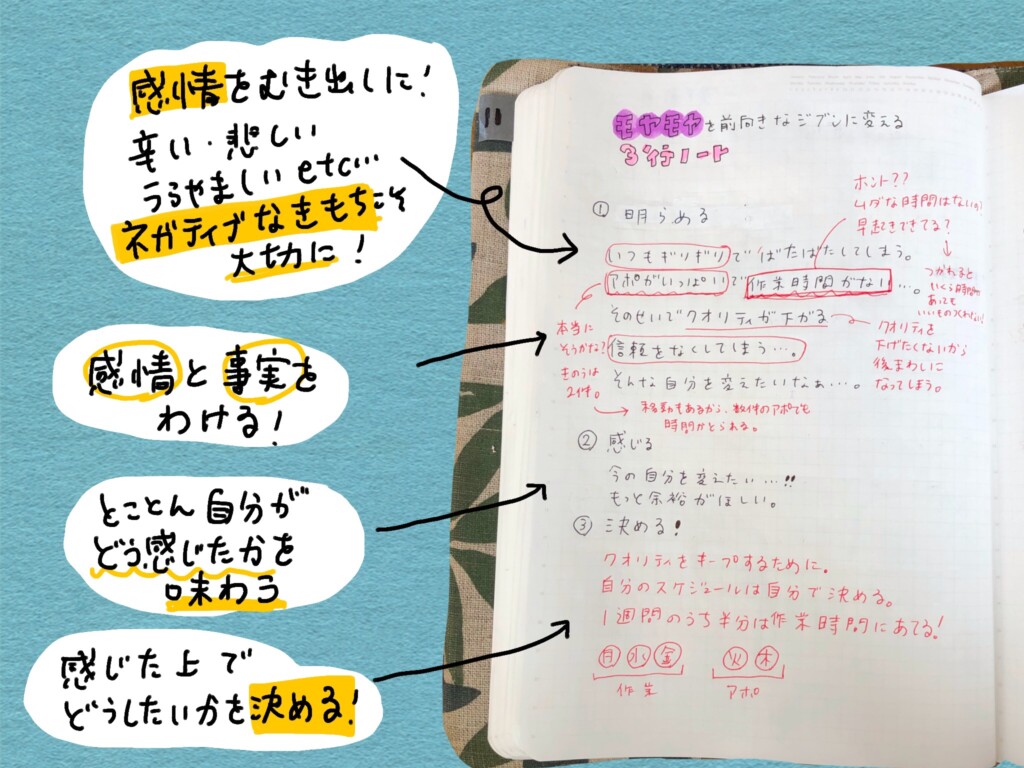 感情をむき出しに!
辛い・悲しい
うらやましい etc…
ネガティブなきもちこそ
大切に!
感情と事実を
わける!
とことん自分が
どう感じたかを
味わう
感じた上で
どうしたいかを決める!
モヤモヤを前向きなジブンに変える
3行ノート
① 明らめる
いつもギリギリでばたばたしてしまう。
アポがいっぱいで作業時間がない…。
そのせいでクオリティが下がる
信頼をなくしてしまう…。
そんな自分を変えたいなぁ…。
ホント??
ムダな時間はないの?
早起きできてる?
つかれると
いくら時間が
あっても
いいものつくれない!
本当に
そうかな?
きのうは
2件。
移動もあるから、数件のアポでも
時間がとられる。
クオリティを
下げたくないから
後まわしに
なってしまう。
② 感じる
今の自分を変えたい…!!
もっと余裕がほしい。
③ 決める!
クオリティをキープするために。
自分のスケジュールは自分で決める。
1週間のうち半分は作業時間にあてる!
月 水 金 火 木
作業 アポ